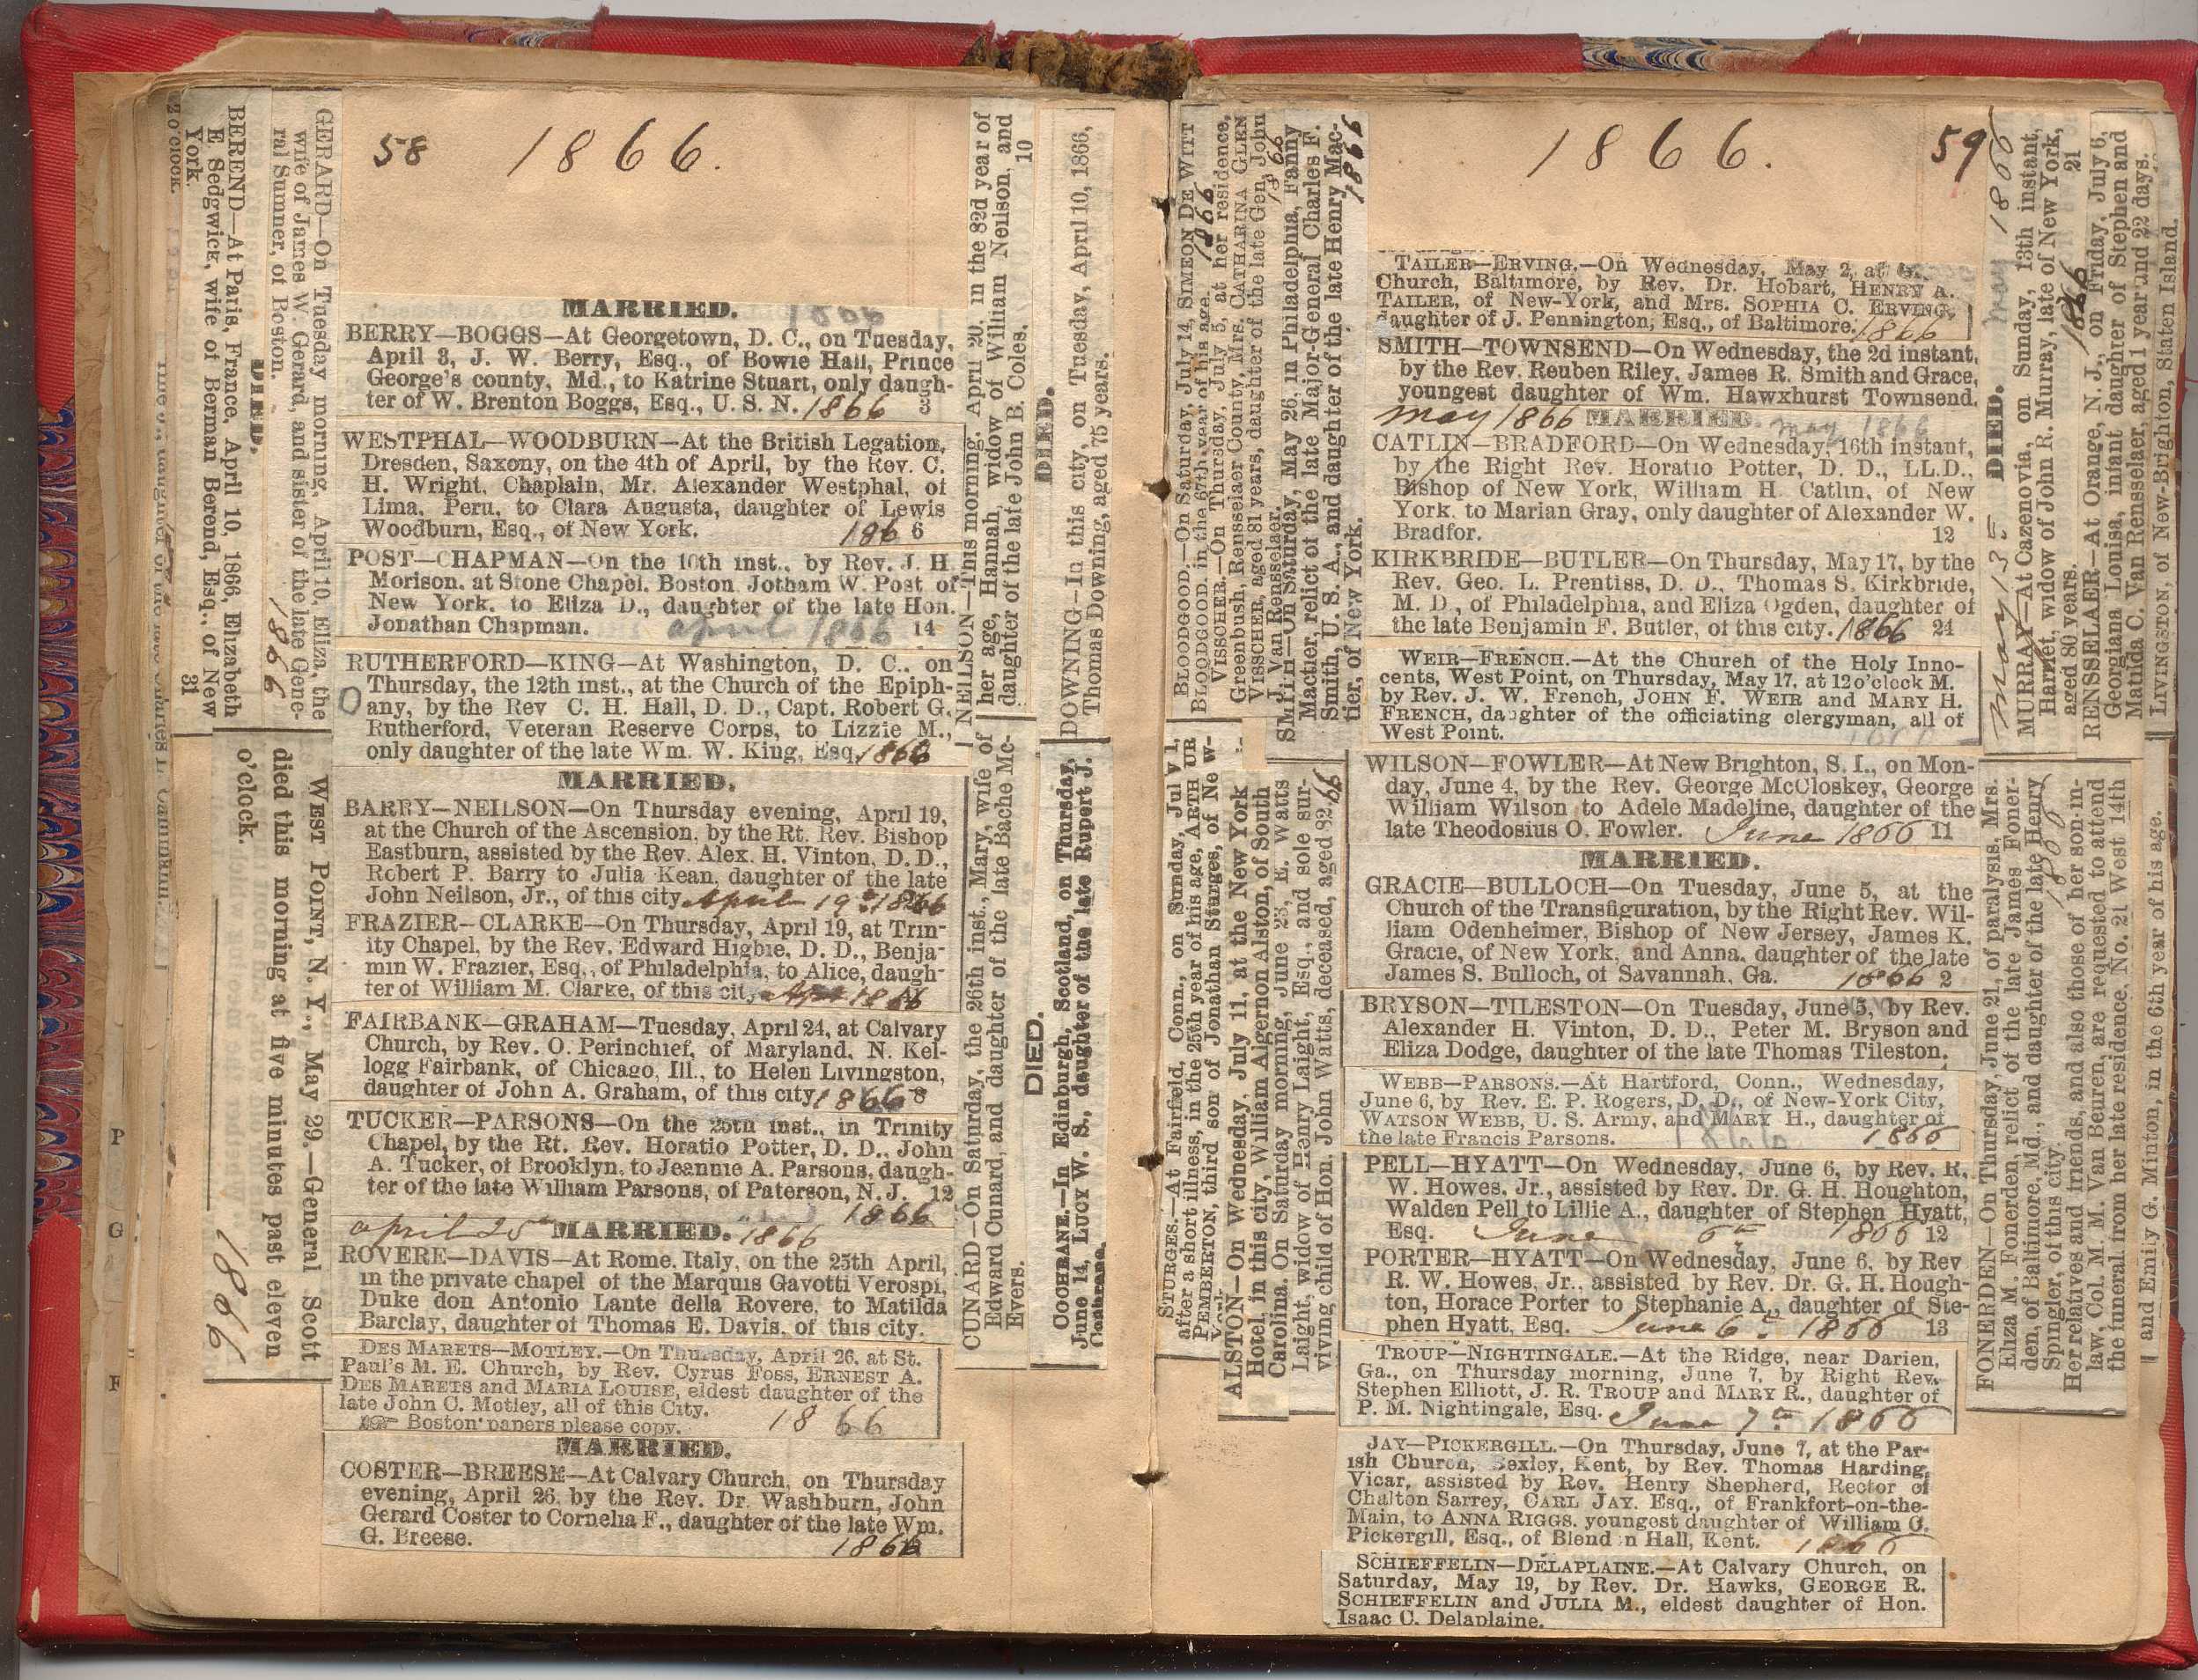 58
1866.
MARRIED.
BERRY—BOGGS—At Georgetown, D. C., on Tuesday,
April 3, J. W. Berry, Esq., of Bowie Hall, Prince
George's county, Md., to Katrine Stuart, only daugh-
ter of W. Brenton Boggs, Esq., U. S. N. 1866 3
WESTPHAL—WOODBURN—At the British Legation,
Dresden, Saxony, on the 4th of April, by the Rev. C.
H. Wright, Chaplain, Mr. Alexander Westphal, of
Lima, Peru, to Clara Augusta, daughter of Lewis
Woodburn, Esq., of New York. 1866
POST—CHAPMAN—On the 10th inst., by Rev. J. H.
Morison, at Stone Chapel, Boston, Jotham W. Post of
New York, to Eliza D., daughter of the late Hon.
Jonathan Chapman. april 1866 14
RUTHERFORD—KING—At Washington, D. C., on
Thursday, the 12th inst., at the Church of the Epiph-
any, by the Rev C. H. Hall, D. D., Capt. Robert G.
Rutherford, Veteran Reserve Corps, to Lizzie M.,
only daughter of the late Wm. W. King, Esq. 1866
MARRIED.
BARRY—NEILSON—On Thursday evening, April 19,
at the Church of the Ascension, by the Rt. Rev. Bishop
Eastburn, assisted by the Rev. Alex. H. Vinton, D. D.,
Robert P. Barry to Julia Kean, daughter of the late
John Neilson, Jr., of this city. April 19th 1866
FRAZIER—CLARKE—On Thursday, April 19, at Trin-
ity Chapel, by the Rev. Edward Higbie, D. D., Benja-
min W. Frazier, Esq., of Philadelphia, to Alice, daugh-
ter of William M. Clarke, of this city. Apr 1866
FAIRBANK—GRAHAM—Tuesday, April 24, at Calvary
Church, by Rev. O. Perinchief, of Maryland, N. Kel-
logg Fairbank, of Chicago, Ill., to Helen Livingston,
daughter of John A. Graham, of this city. 1866 8
TUCKER—PARSONS—On the 25th inst., in Trinity
Chapel, by the Rt. Rev. Horatio Potter, D. D., John
A. Tucker, of Brooklyn, to Jeannie A. Parsons, daugh-
ter of the late William Parsons, of Paterson, N. J. 12
1866
april 25th MARRIED. 1866
ROVERE—DAVIS—At Rome, Italy, on the 25th April,
in the private chapel of the Marquis Gavotti Verospi,
Duke don Antonio Lante della Rovere, to Matilda
Barclay, daughter of Thomas E. Davis, of this city.
DES MARETS—MOTLEY.—On Thursday, April 26, at St.
Paul's M. E. Church, by Rev. Cyrus Foss, ERNEST A.
DES MARETS and MARIA LOUISE, eldest daughter of the
late John C. Motley, all of this City. 1866
☞ Boston papers please copy.
MARRIED.
COSTER—BREESE—At Calvary Church, on Thursday
evening, April 26, by the Rev. Dr. Washburn, John
Gerard Coster to Cornelia F., daughter of the late Wm.
G. Breese. 1866
GERARD—On Tuesday morning, April 10, Eliza, the
wife of James W. Gerard, and sister of the late Gene-
ral Sumner, of Boston. 1866
DIED.
BEREND—At Paris, France, April 10, 1866, Elizabeth
E. Sedgwick, wife of Berman Berend, Esq., of New
York. 31
2 o'clock.
WEST POINT, N. Y., May 29.—General Scott
died this morning at five minutes past eleven
o'clock. 1866
NEILSON—This morning, April 20, in the 82d year of
her age, Hannah, widow of William Neilson, and
daughter of the late John B. Coles. 10
DIED.
DOWNING—In this city, on Tuesday, April 10, 1866,
Thomas Downing, aged 75 years.
CUNARD—On Saturday, the 26th inst., Mary, wife of
Edward Cunard, and daughter of the late Bache Mc-
Evers.
DIED.
COCHRANE.—In Edinburgh, Scotland, on Thursday,
June 14, LUCY W. S., daughter of the late Rupert J.
Cochrane.
1866.
59
BLOODGOOD.—On Saturday, July 14, SIMEON DE WITT
BLOODGOOD, in the 67th year of his age. 1866
VISSCHER.—On Thursday, July 5, at her residence,
Greenbush, Rensselaer County, Mrs. CATHARINA GLEN
VISSCHER, aged 81 years, daughter of the late Gen. John
J. Van Rensselaer. 1866
SMITH—On Saturday, May 26, in Philadelphia, Fanny
Mactier, relict of the late Major-General Charles F.
Smith, U. S. A., and daughter of the late Henry Mac-
tier, of New York. 1866
STURGES.—At Fairfield, Conn., on Sunday, July 1,
after a short illness, in the 25th year of his age, ARTHUR
PEMBERTON, third son of Jonathan Sturges, of New-
York.
ALSTON—On Wednesday, July 11, at the New York
Hotel, in this city, William Algernon Alston, of South
Carolina.
On Saturday morning, June 23, E. Watts
Laight, widow of Henry Laight, Esq., and sole sur-
viving child of Hon. John Watts, deceased, aged 82. 66
TAILER—ERVING.—On Wednesday, May 2, at
Church, Baltimore, by Rev. Dr. Hobart, HENRY A.
TAILER, of New-York, and Mrs. SOPHIA C. ERVING,
daughter of J. Pennington, Esq., of Baltimore. 1866
SMITH—TOWNSEND—On Wednesday, the 2d instant,
by the Rev. Reuben Riley, James R. Smith and Grace,
youngest daughter of Wm. Hawxhurst Townsend.
may 1866 MARRIED. may 1866
CATLIN—BRADFORD—On Wednesday, 16th instant,
by the Right Rev. Horatio Potter, D. D., LL.D.,
Bishop of New York, William H. Catlin, of New
York, to Marian Gray, only daughter of Alexander W.
Bradfor. 12
KIRKBRIDE—BUTLER—On Thursday, May 17, by the
Rev. Geo. L. Prentiss, D. D., Thomas S. Kirkbride,
M. D., of Philadelphia, and Eliza Ogden, daughter of
the late Benjamin F. Butler, of this city. 1866 24
WEIR—FRENCH.—At the Church of the Holy Inno-
cents, West Point, on Thursday, May 17, at 12 o'clock M.
by Rev. J. W. French, JOHN F. WEIR and MARY H.
FRENCH, daughter of the officiating clergyman, all of
West Point.
WILSON—FOWLER—At New Brighton, S. I., on Mon-
day, June 4, by the Rev. George McCloskey, George
William Wilson to Adele Madeline, daughter of the
late Theodosius O. Fowler. June 1866 11
MARRIED.
GRACIE—BULLOCH—On Tuesday, June 5, at the
Church of the Transfiguration, by the Right Rev. Wil-
liam Odenheimer, Bishop of New Jersey, James K.
Gracie, of New York, and Anna, daughter of the late
James S. Bulloch, of Savannah, Ga. 1866 2
BRYSON—TILESTON—On Tuesday, June 5, by Rev.
Alexander H. Vinton, D. D., Peter M. Bryson and
Eliza Dodge, daughter of the late Thomas Tileston.
WEBB—PARSONS.—At Hartford, Conn., Wednesday,
June 6, by Rev. E. P. Rogers, D. D., of New-York City,
WATSON WEBB, U. S. Army, and MARY H., daughter of
the late Francis Parsons. 1866
PELL—HYATT—On Wednesday, June 6, by Rev. R.
W. Howes, Jr., assisted by Rev. Dr. G. H. Houghton,
Walden Pell to Lillie A., daughter of Stephen Hyatt,
Esq. June 6th 1866 12
PORTER—HYATT—On Wednesday, June 6, by Rev
R. W. Howes, Jr., assisted by Rev. Dr. G. H. Hough-
ton, Horace Porter to Stephanie A., daughter of Ste-
phen Hyatt, Esq. June 6th 1866 13
TROUP—NIGHTINGALE.—At the Ridge, near Darien,
Ga., on Thursday morning, June 7, by Right Rev.
Stephen Elliott, J. R. TROUP and MARY R., daughter of
P. M. Nightingale, Esq. June 7th 1866
JAY—PICKERGILL.—On Thursday, June 7, at the Par-
ish Church, Bexley, Kent, by Rev. Thomas Harding,
Vicar, assisted by Rev. Henry Shepherd, Rector of
Chalton Sarrey, CARL JAY, Esq., of Frankfort-on-the-
Main, to ANNA RIGGS, youngest daughter of William C.
Pickergill, Esq., of Blendon Hall, Kent. 1866
SCHIEFFELIN—DELAPLAINE.—At Calvary Church, on
Saturday, May 19, by Rev. Dr. Hawks, GEORGE R.
SCHIEFFELIN and JULIA M., eldest daughter of Hon.
Isaac C. Delaplaine.
may 13th DIED. may 1866
MURRAY—At Cazenovia, on Sunday, 13th instant,
Harriet, widow of John R. Murray, late of New York,
aged 80 years. 1866 21
RENSSELAER—At Orange, N. J., on Friday, July 6,
Georgiana Louisa, infant daughter of Stephen and
Matilda C. Van Rensselaer, aged 1 year and 22 days.
LIVINGSTON, of New-Brighton, Staten Island.
FONERDEN—On Thursday, June 21, of paralysis, Mrs.
Eliza M. Fonerden, relict of the late James Foner-
den, of Baltimore, Md., and daughter of the late Henry
Spingler, of this city. 1866
Her relatives and friends, and also those of her son-in-
law, Col. M. M. Van Beuren, are requested to attend
the funeral from her late residence, No. 21 West 14th
and Emily G. Minton, in the 6th year of his age.